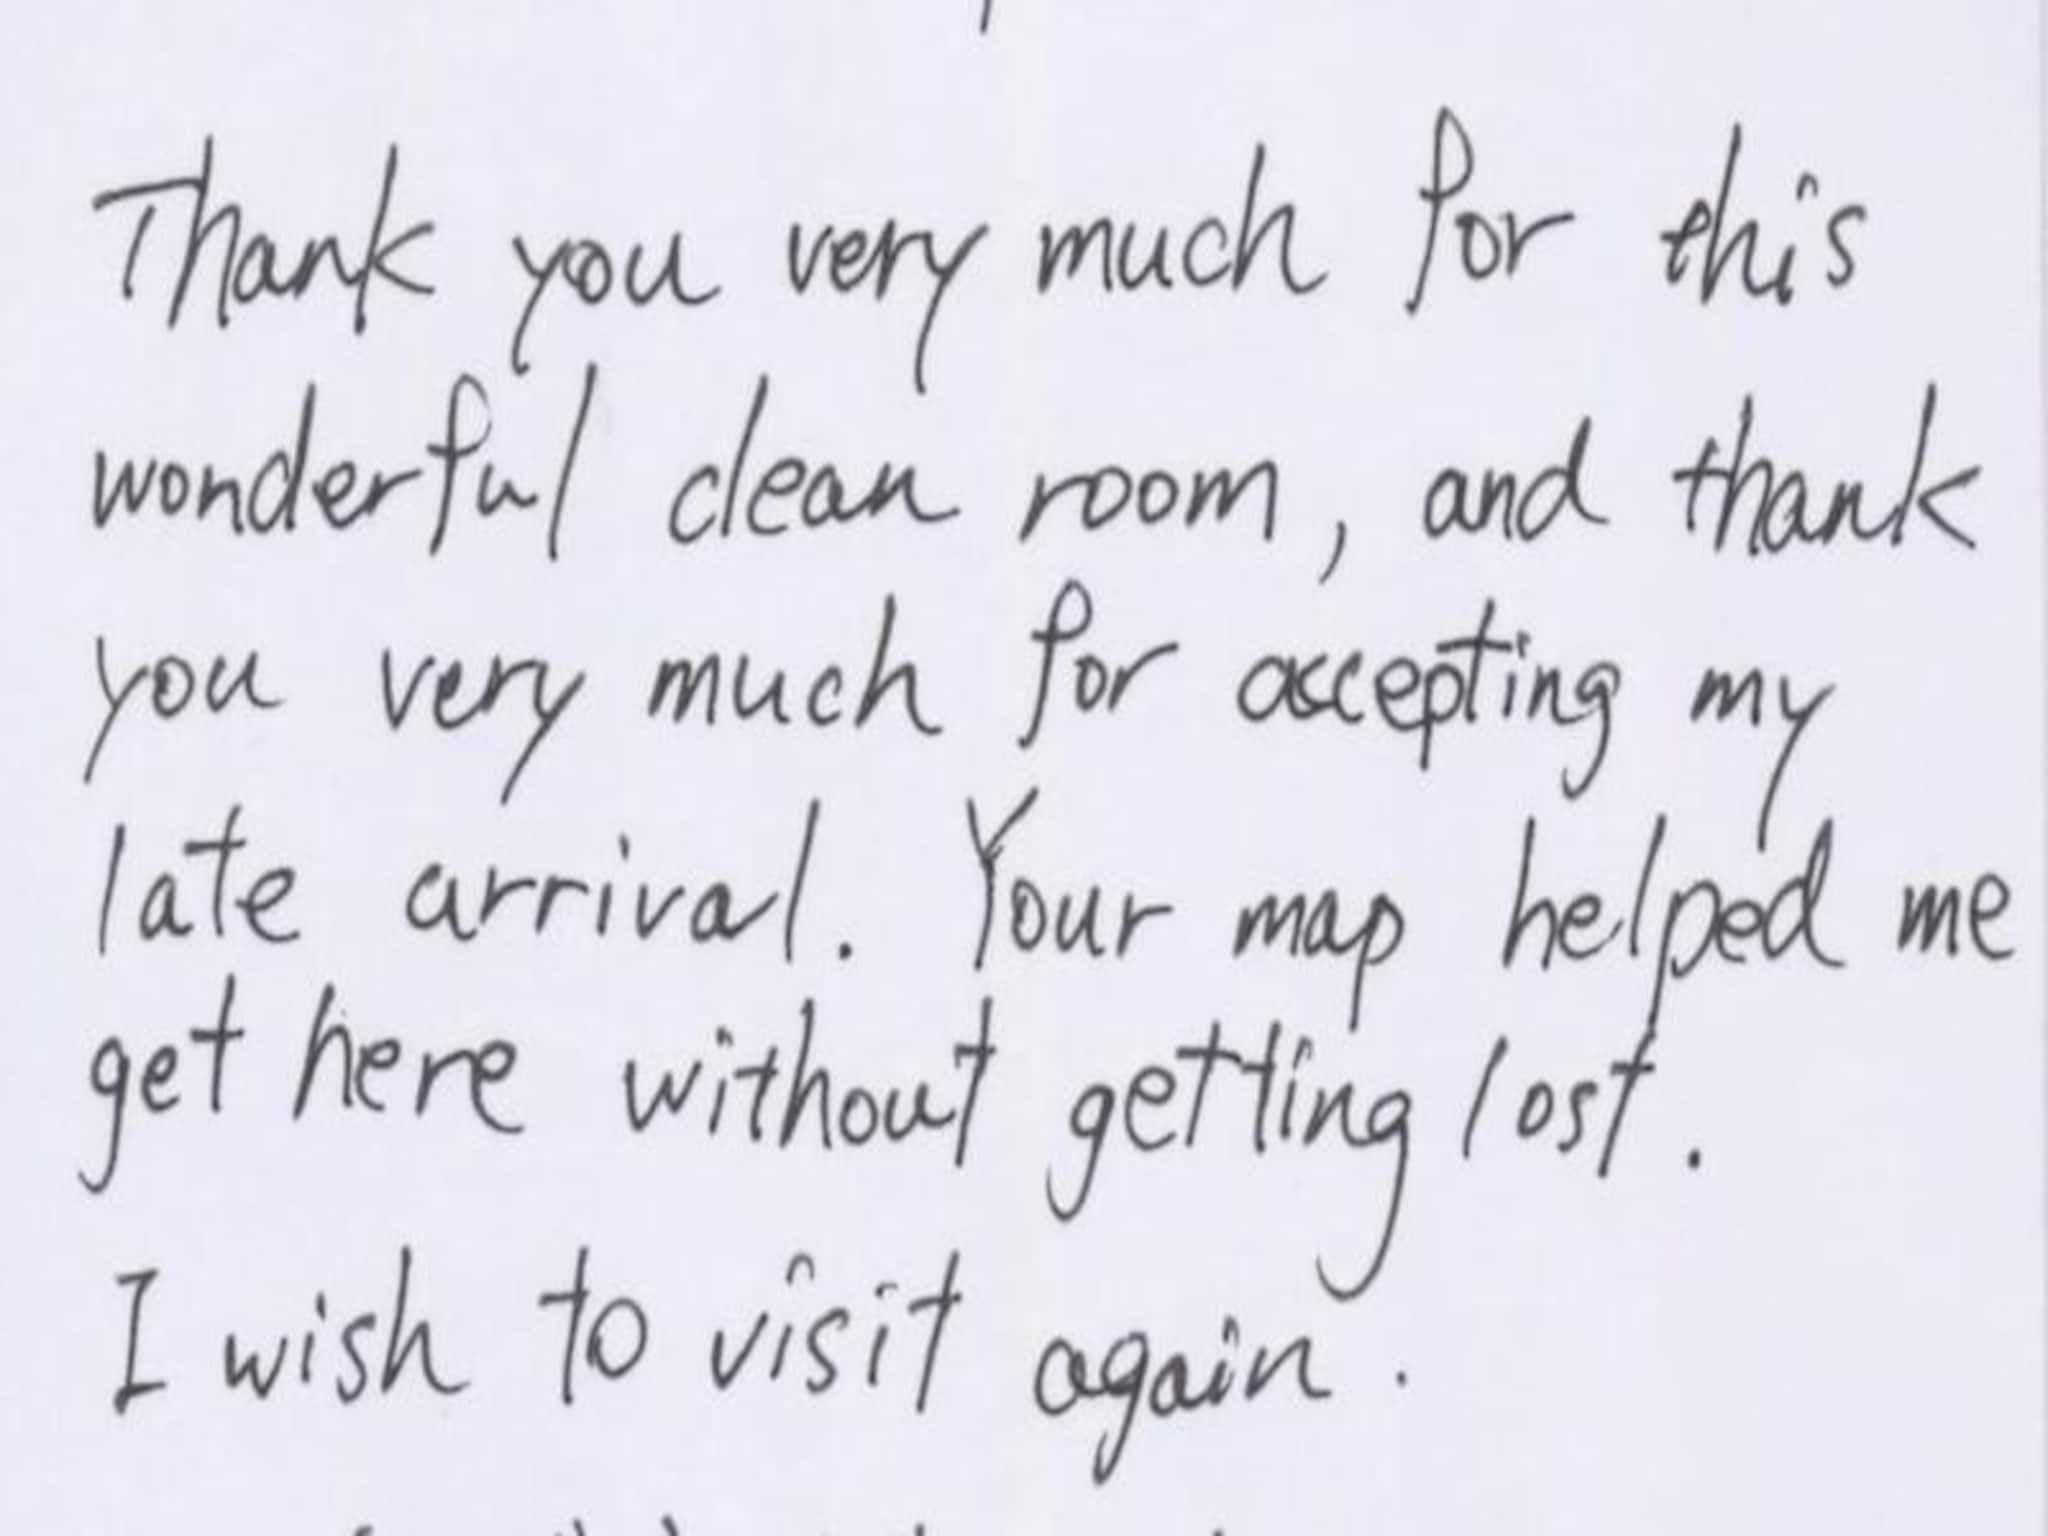 Thank you very much for this
wonderful clean room, and thank
you very much for accepting my
late arrival. Your map helped me
get here without getting lost.
I wish to visit again.